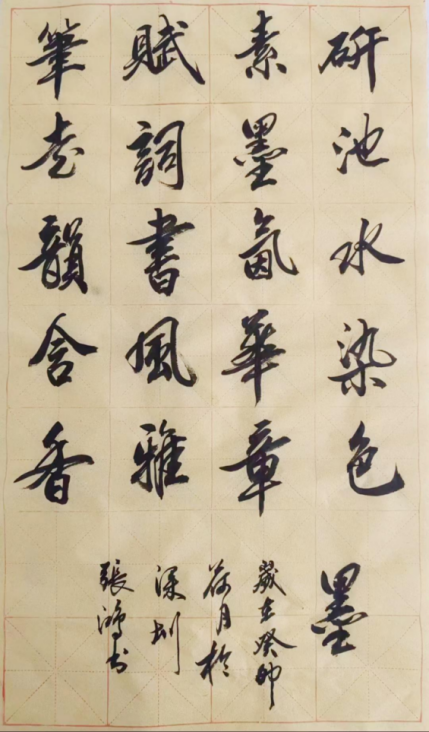 研池水染色
墨
素墨氤華章
賦詞書風雅
筆韻含香
歲在癸卯
荷月於
深圳
張鴻書